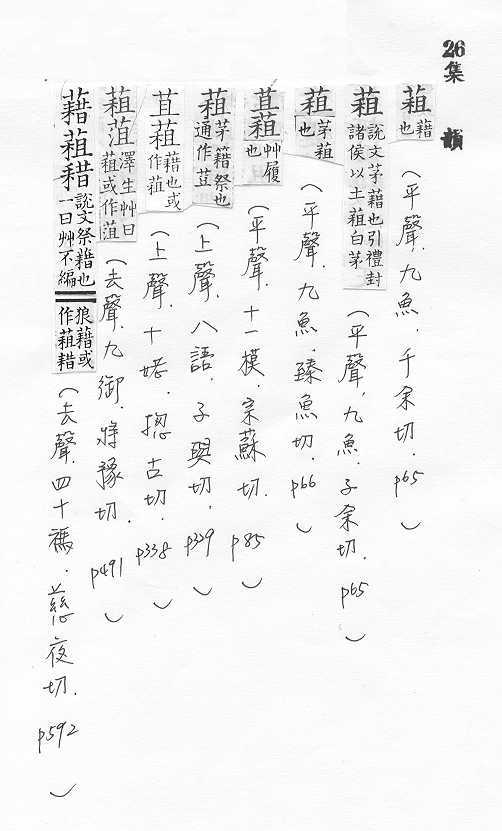 26集韻
葅藉也（平聲．九魚．千余切．p65）
葅說文茅藉也引禮封諸侯以土葅白茅（平聲．九魚．子余切．p65）
葅茅葅也（平聲．九魚．臻魚切．p66）
苴葅艸履也（平聲．十一模．宗蘇切．p85）
葅茅籍祭也通作苴（上聲．八語．子與切．p329）
苴葅藉也或作葅（上聲．十姥．摠古切．p338）
葅菹澤生艸曰葅或作菹（去聲．九御．將豫切．p491）
藉葅耤說文祭藉也一曰艸不編狼藉或作葅耤（去聲．四十禡．慈夜切．p592）